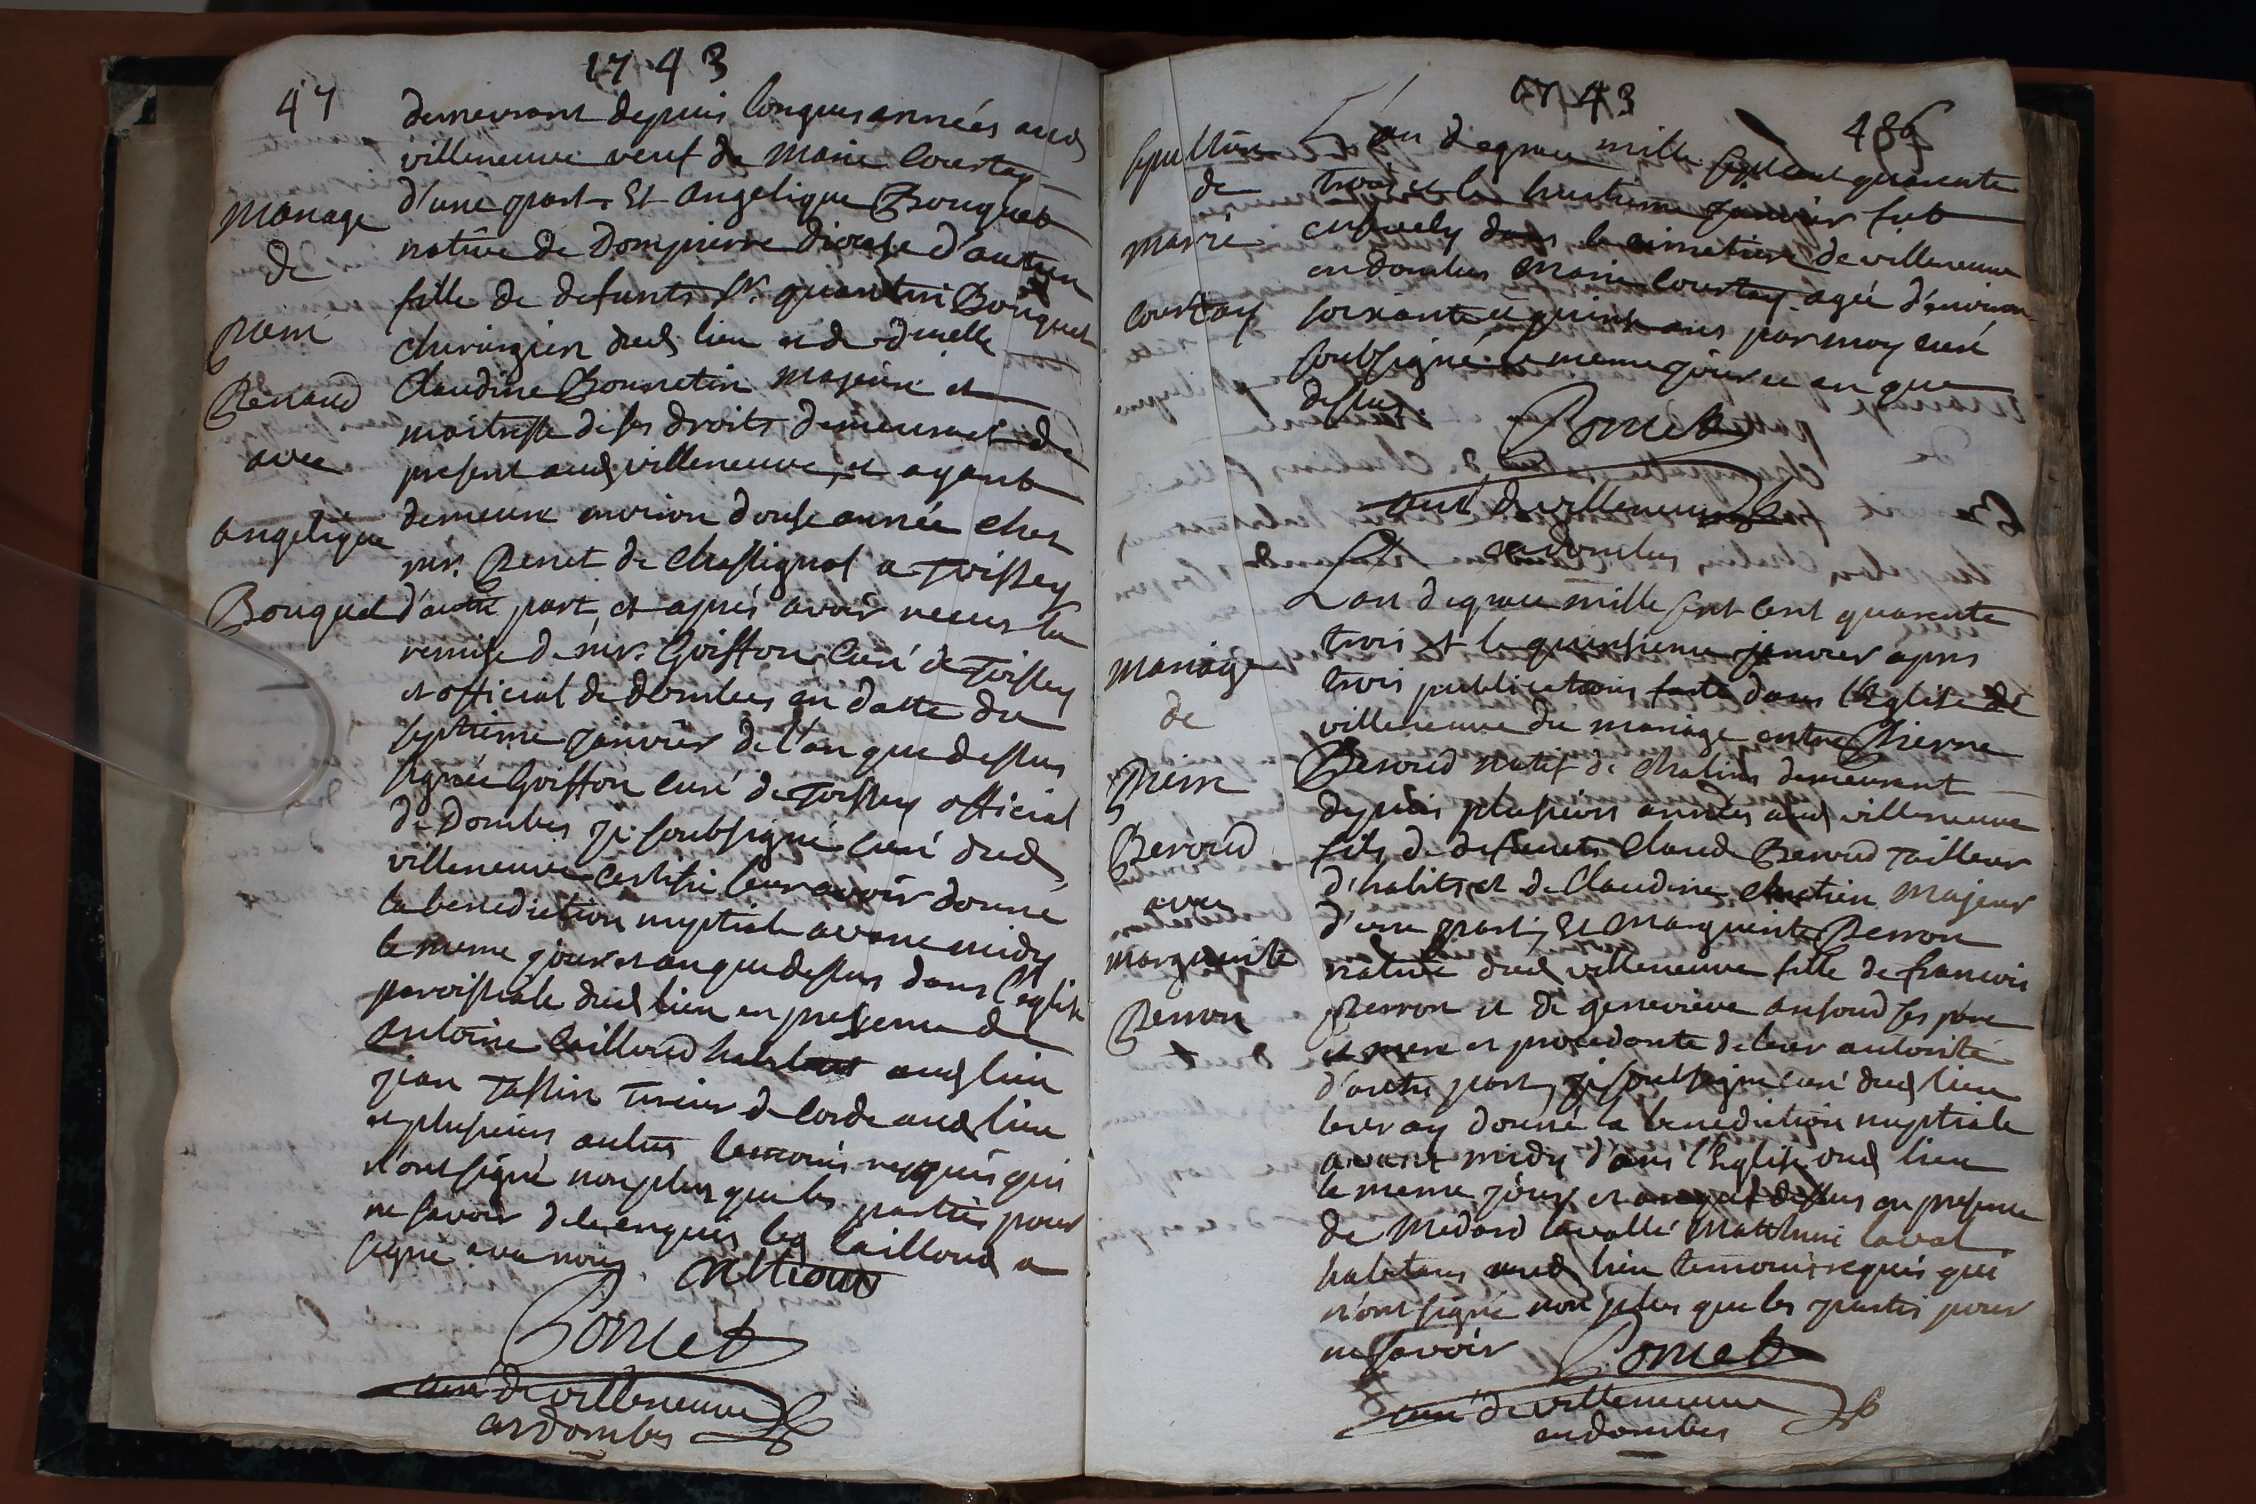 1743
47
demeurant depuis longues années aud
villeneuve veuf de Marie Courtay
d'une part. Et Angelique Bouquet
Mariage
de
Pierre
Renaud
avec
angelique
Bouquet
native de Dompierre diocese d'autun
fille de defunts Sr. quantin Bouquet
chirurgien dud lieu et de dmelle
Claudine Bonnetin majeure et
maitresse de ses droits demeurant de
present aud villeneuve, et ayant
demeure environ douse année chez
mr. Benet de Chassignol a Toissey
d'autre part, et aprés avoir receus la
remise de mr. Goiffon Curé de Toissey
et official de dombes en datte du
septieme janvier de l'an que dessus
signée Goiffon curé de Toissey official
de Dombes je soubsigné Curé dud
villeneuve Certifie leur avoir donné
la benediction nuptiale avant midy
le meme jour et an que dessus dans l'eglise
paroissiale dud lieu en presence de
Antoine Cailloud habitant aud lieu
jean Tassin Tireur de Corde aud lieu
et plusieurs autres temoins requis qui
n'ont signé non plus que les parties pour
ne savoir de ce enquis led Cailloud a
signé avec nous
Comet
curé de villeneuve
en dombes
1743
486
Sepulture
de
marie
Courtay
L'an de grace mille sept cent quarente
trois et le huitieme janvier fut
enseuely dans le cimetiere de villeneuve
en dombes Marie Courtay agée d'environ
soixante et quinze ans par moy curé
soubsigné le meme jour et an que
dessus
Comet
curé de villeneuve
en dombes
Mariage
de
Pierre
Beroud
avec
marguerite
Perron
L'an de grace mille sept cent quarente
trois et le quinsieme janvier apres
trois publications faite dans l'Eglise de
villeneuve du mariage entre Pierre
Beroud natif de Chalins demeurant
depuis plusieurs années aud villeneuve
fils de defunts Claud Beroud Tailleur
d'habits et de Claudine Chretien Majeur
d'une part; Et Marguerite Perron
native dud villeneuve fille de francois
Perron et de genevieve ses pere
et mere et procedante de leur autorité
d'autre part, je soubsigné curé dud lieu
leur ay donné la benediction nuptiale
avant midy dans l'Eglise dud lieu
le meme jour et an que dessus en presence
de Medard Lavallé Mathieu Laval
habitans aud lieu temoins requis qui
n'ont signé non plus que les parties pour
ne savoir Comet
curé de villeneuve
en dombes